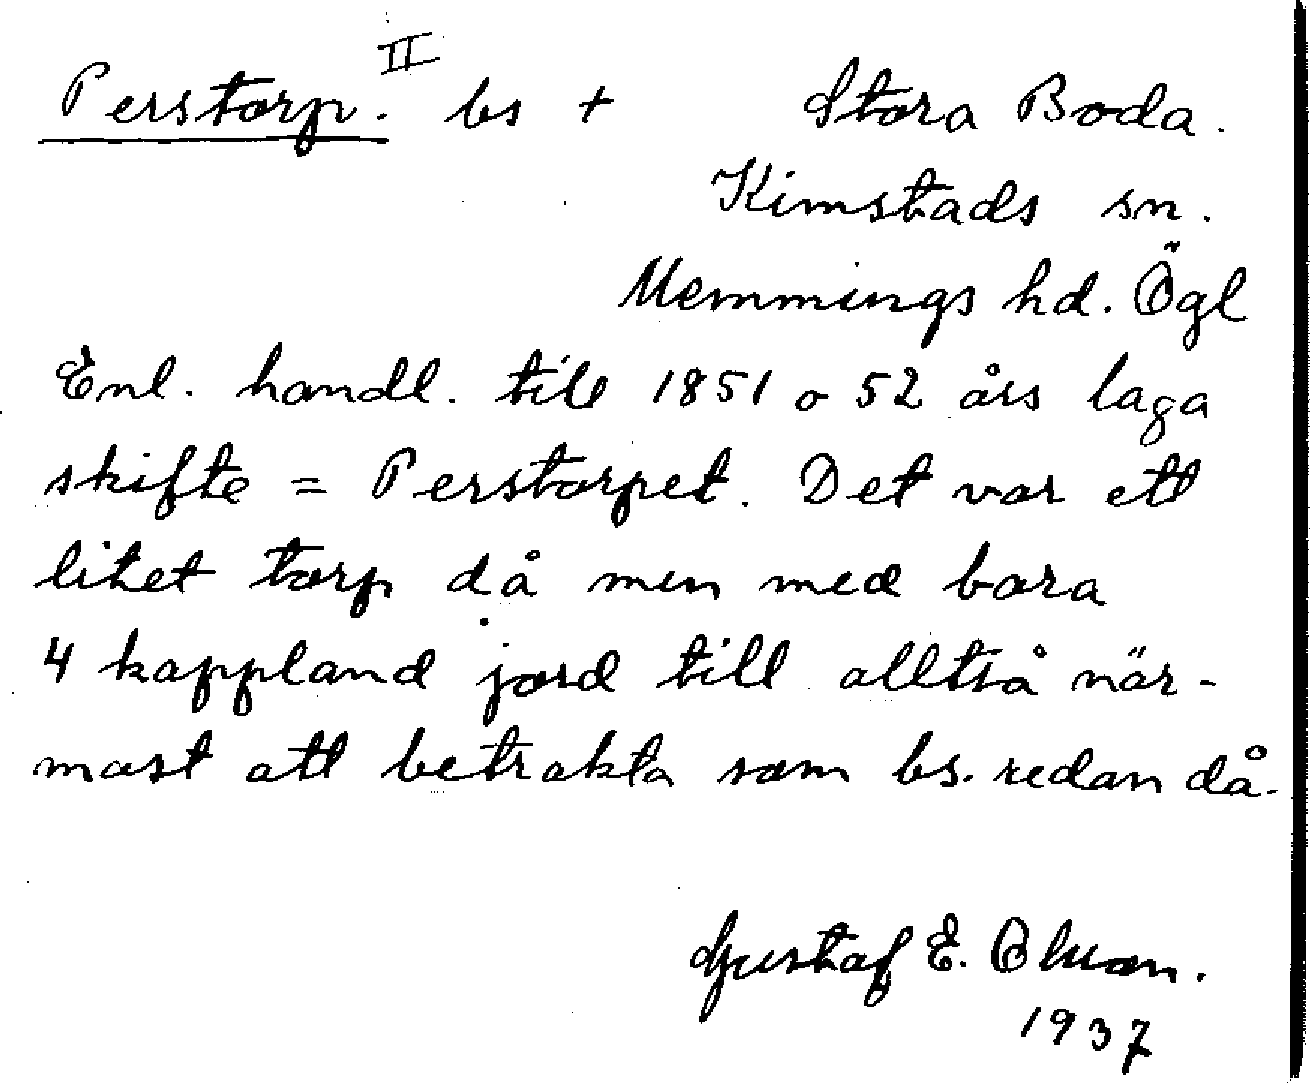 Perstorp. II bs + Stora Boda.
Kimstads sn.
Memmings hd. Ögl
Enl. handl. till 1851 o 52 års laga
skifte = Perstorpet. Det var ett
litet torp då men med bara
4 kappland jord till alltså när-
mast att betrakta som bs. redan då.
Gustaf E.
1937